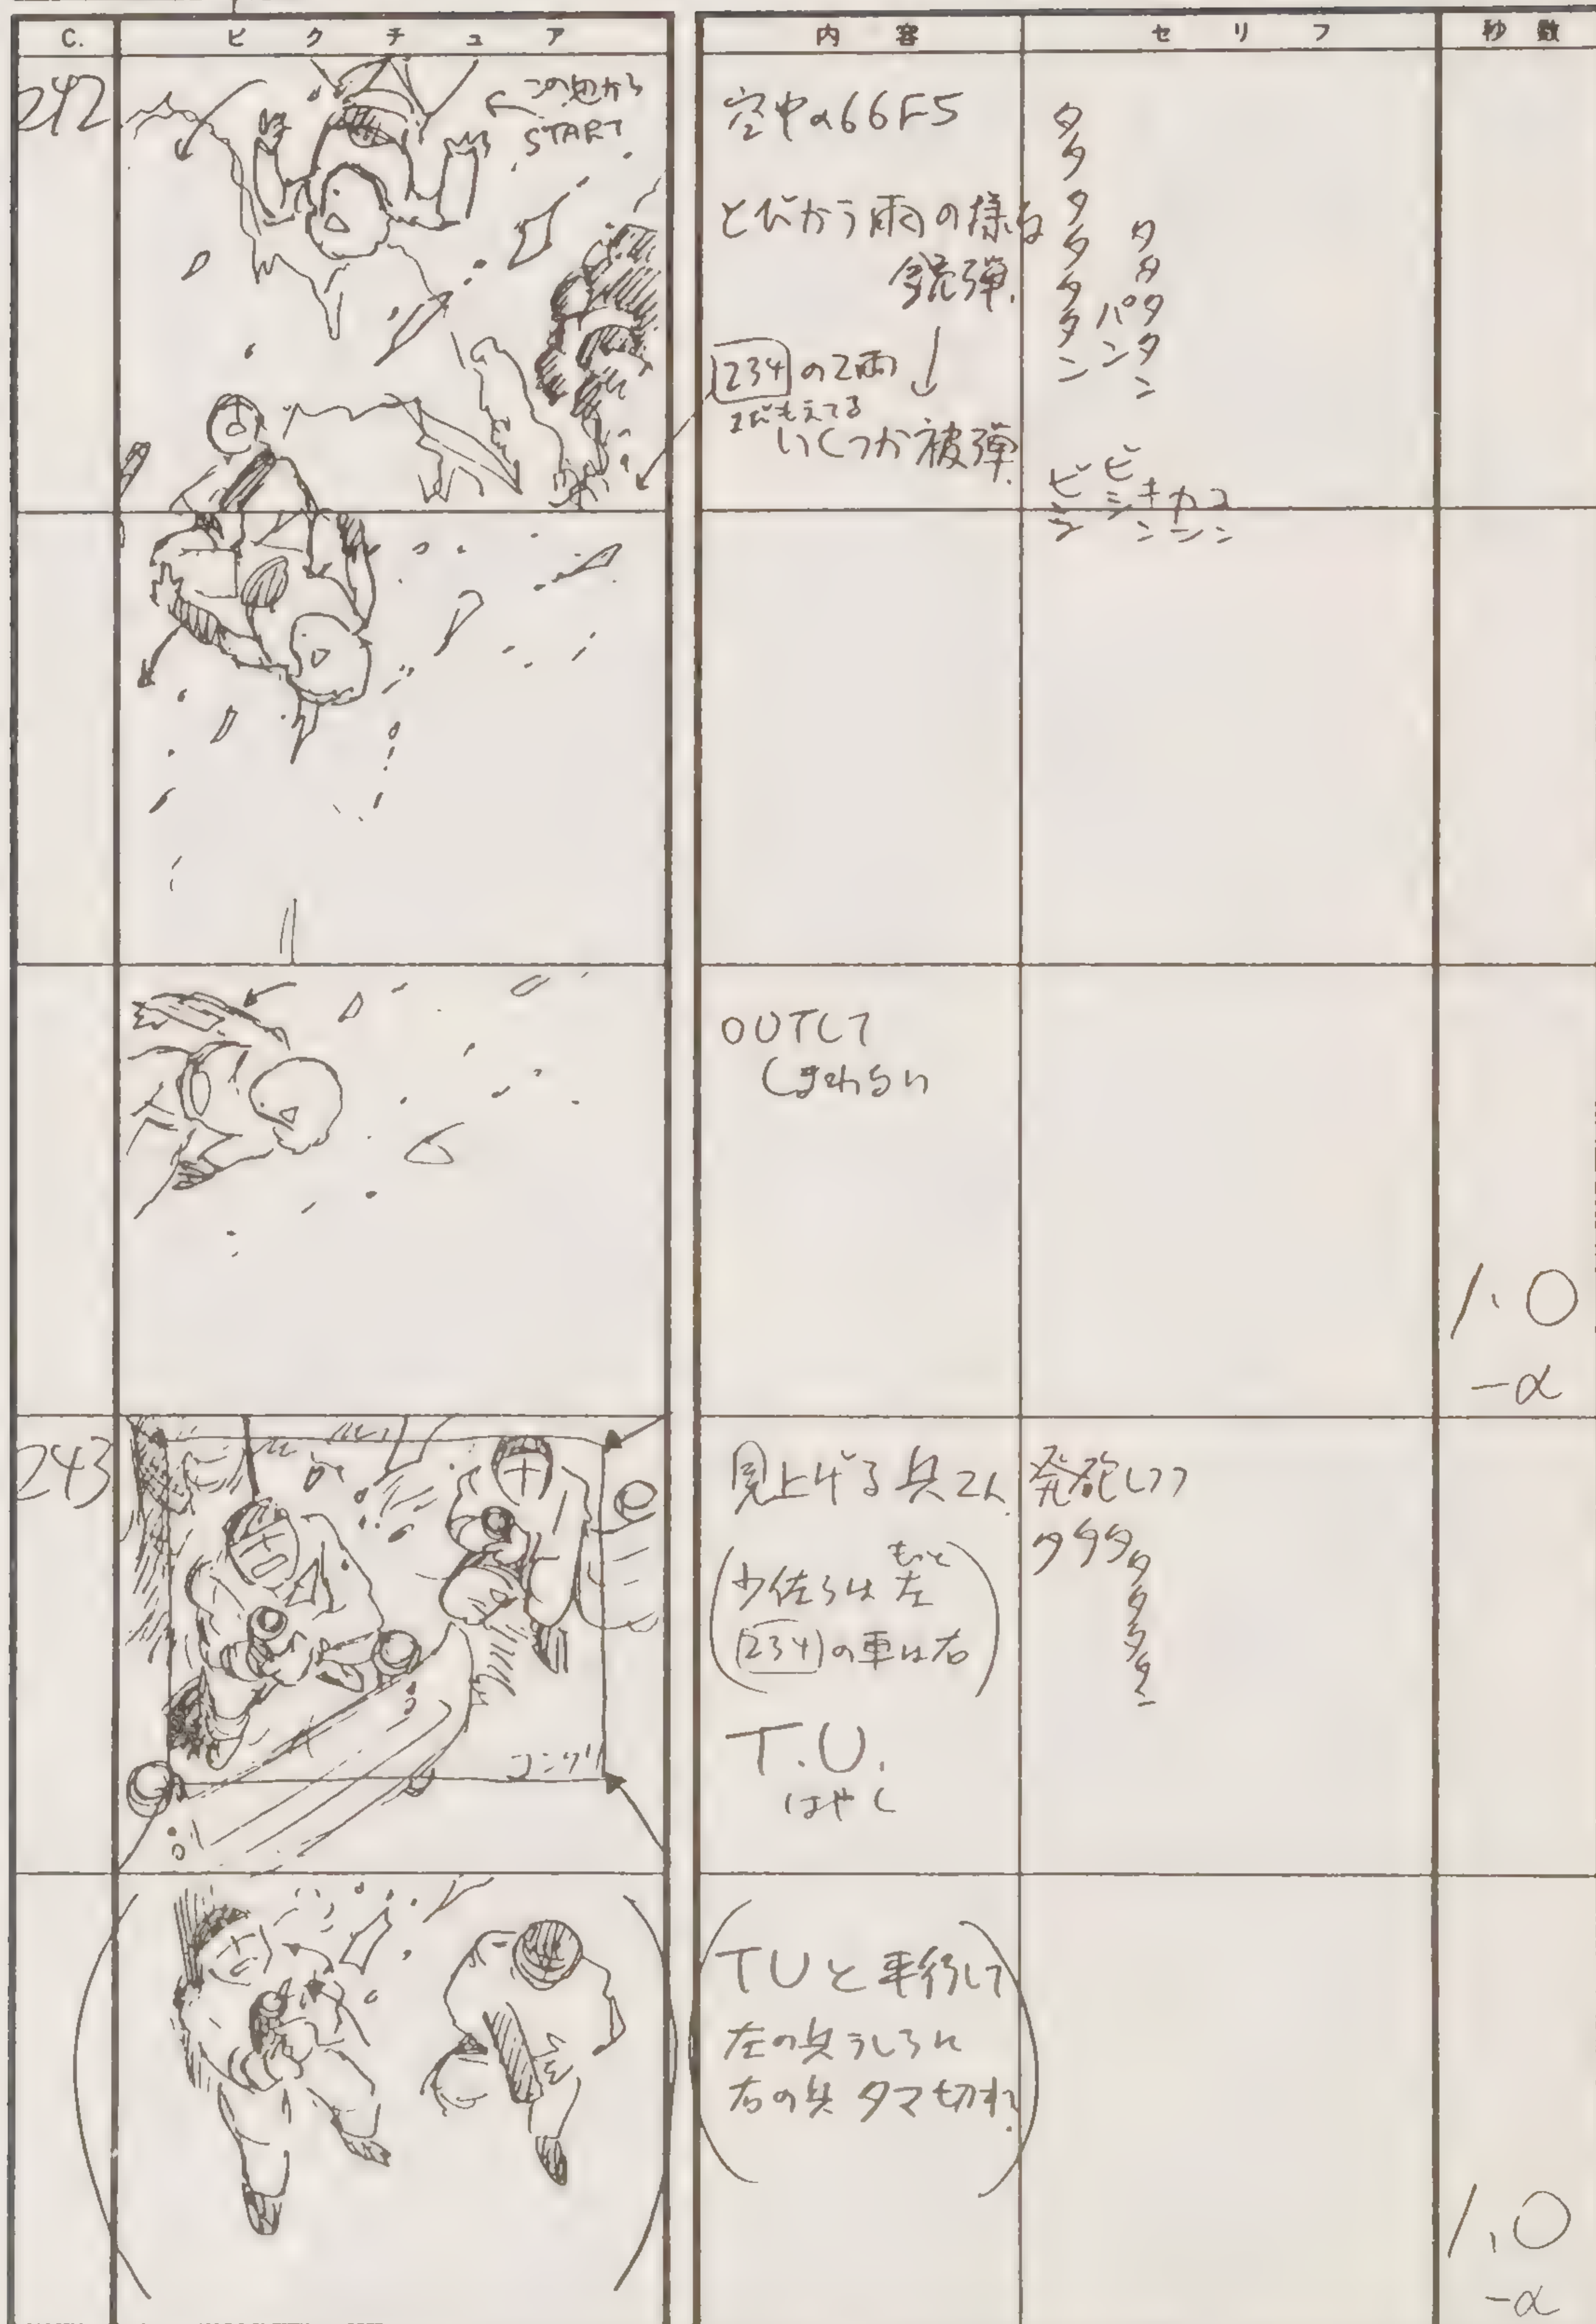 C. ピクチュア 内容 セリフ 秒数
242
この処から
START
空中の66F5
とびかう雨の様な
銃弾.
234の2両
まだもえてる
いくつか被弾.
タタタタタタン
パン
タタタタン
ビシ
ビシ
キン
カン
コン
OUTして
しまわない
1.0
-α
243
コンクリ
見上げる兵2人
(少佐らは もっと左
234の車は右)
T.U.
はやく
発砲しつつ
タタタタタタタン
(TUと平行して
左の兵うしろに
右の兵 タマ切れ.)
1.0
-α